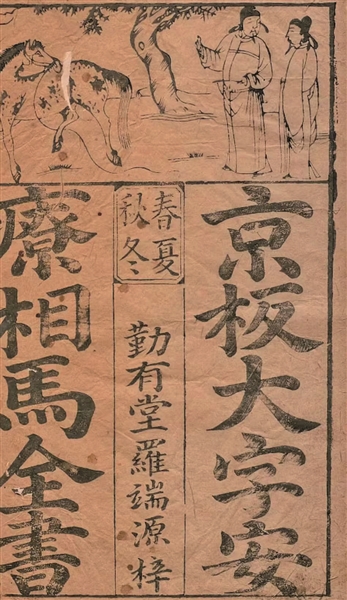 京板大字安
春夏
秋冬
勤有堂羅端源梓
療相馬全書